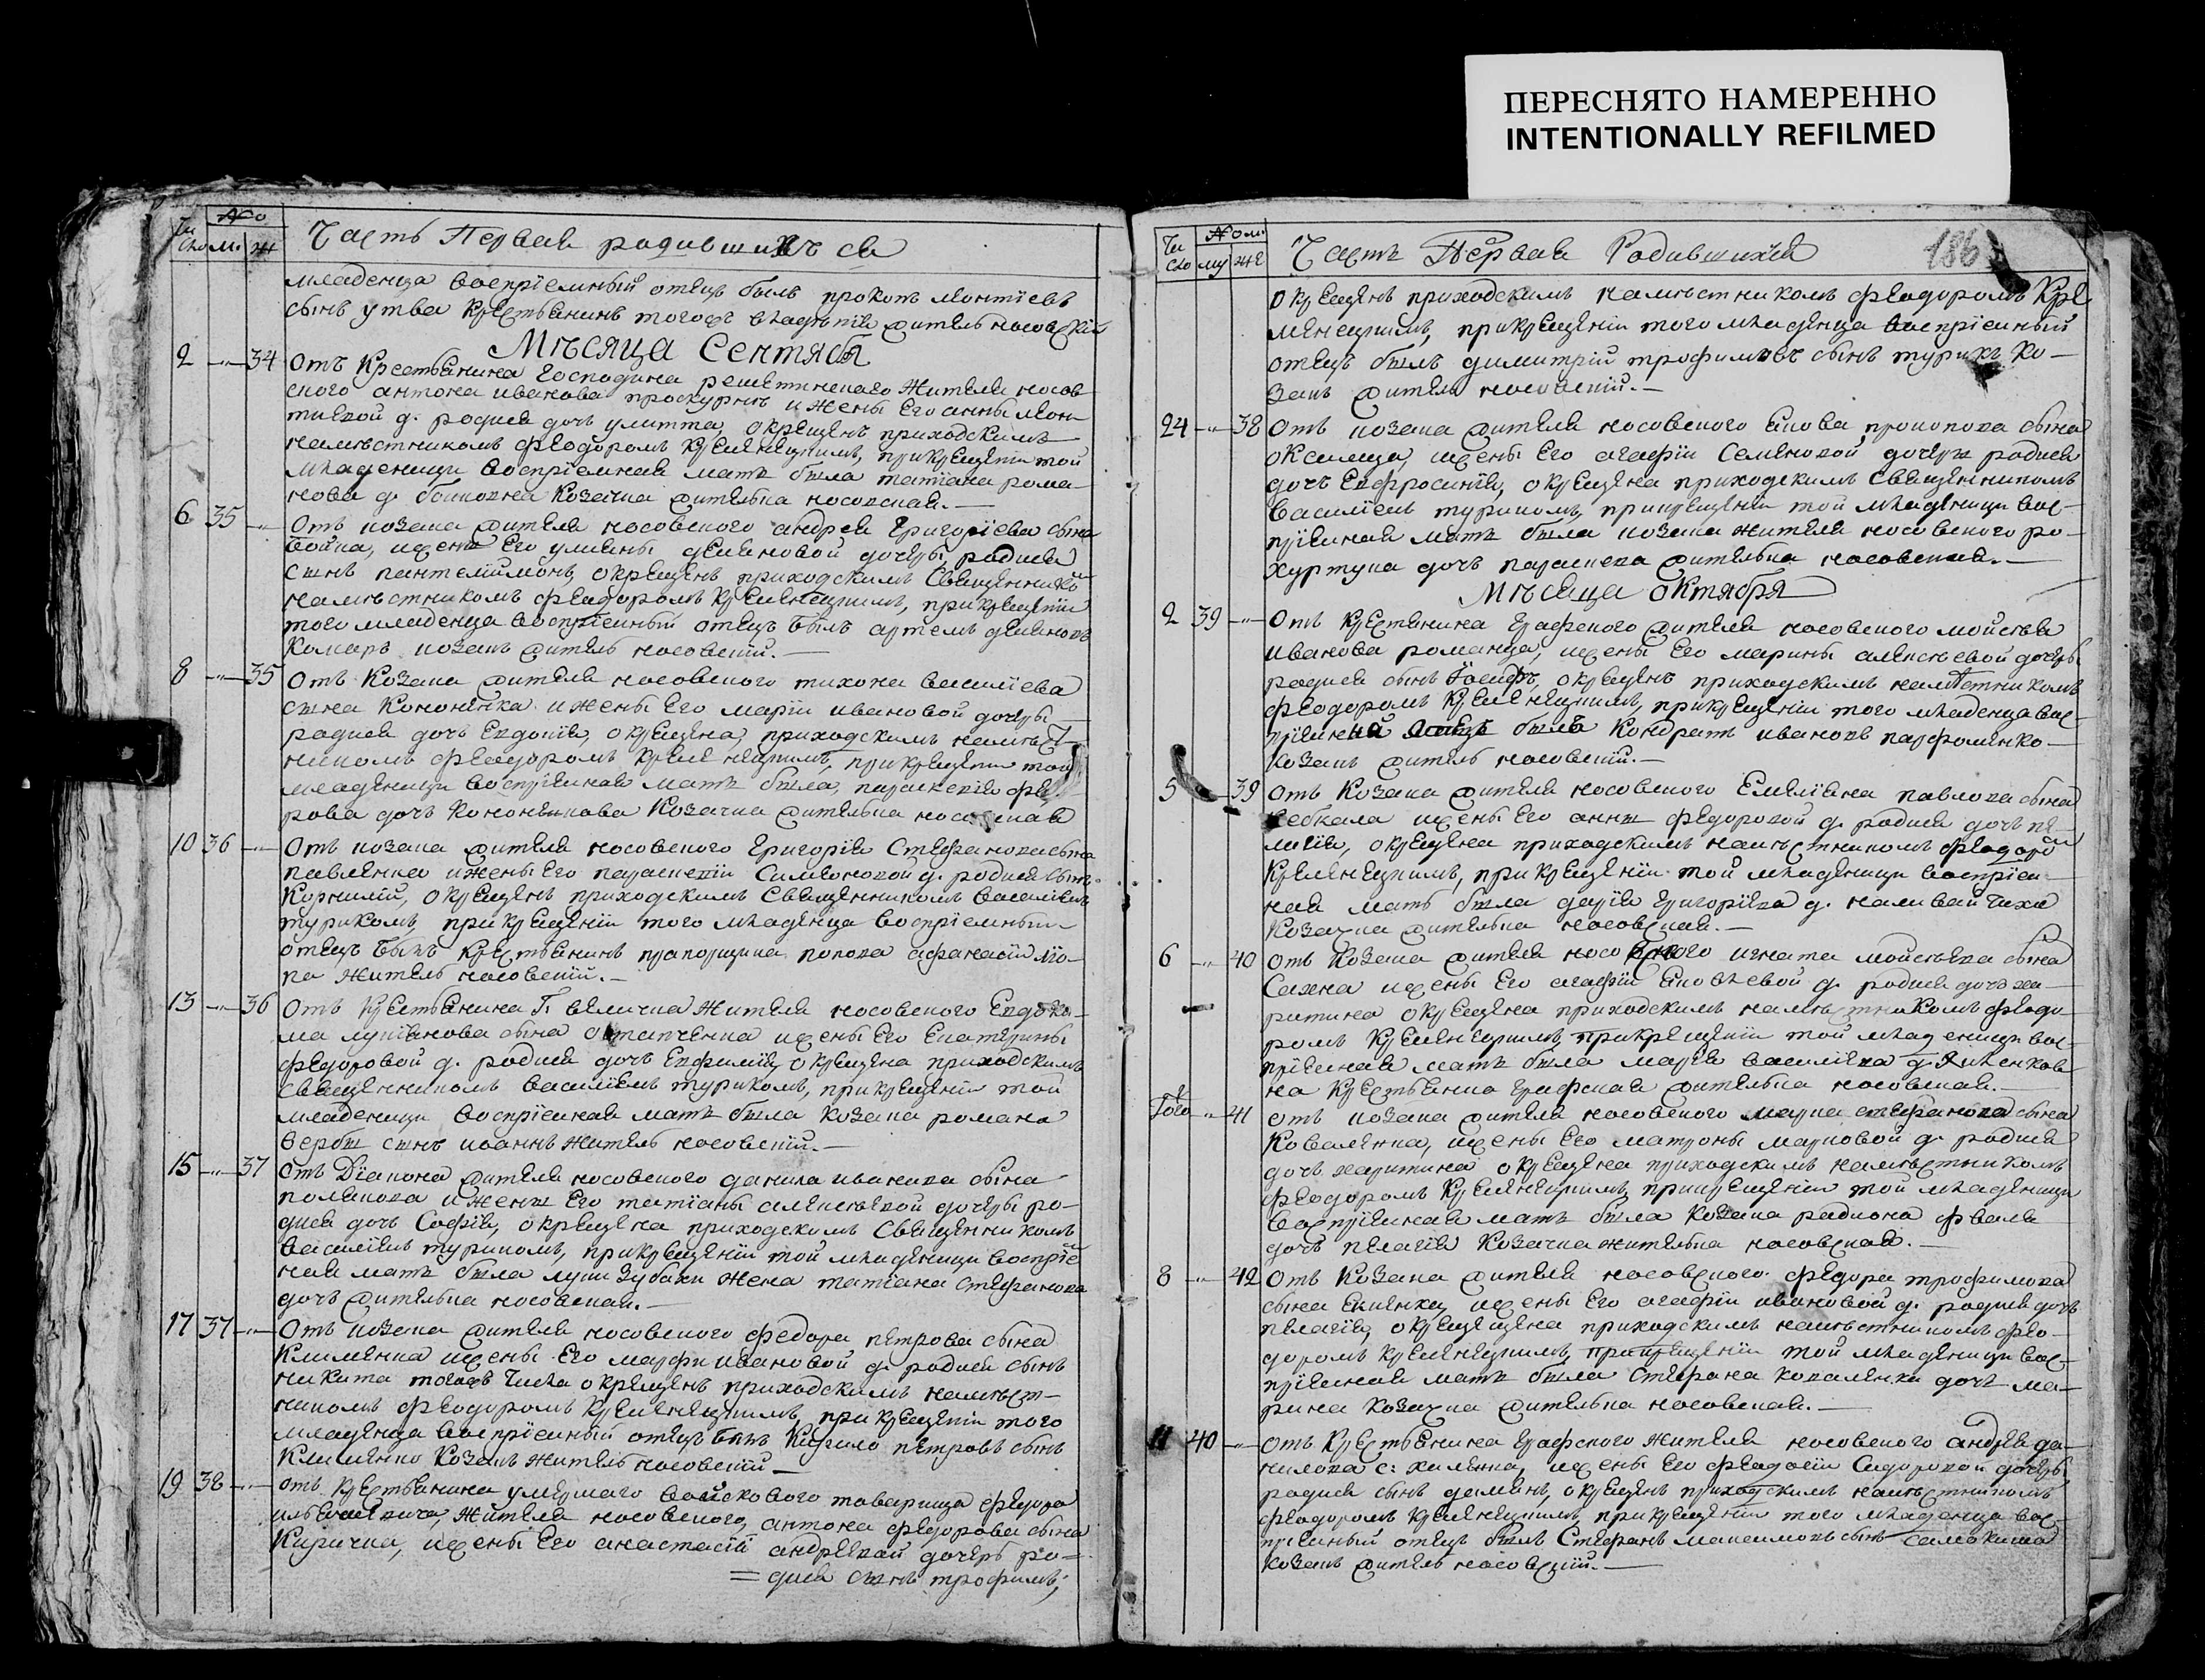 ПЕРЕСНЯТО НАМЕРЕННО
INTENTIONALLY REFILMED
Чи сло
№
м ж
Часть Первая родившихъ ся
младенца воспріемный отецъ былъ прокопъ леонтіевъ
сынъ крестьянинъ тогожъ владѣнія житель носовскій
Мѣсяца Сентября
2 —"— 34 Отъ Крестьянина господина решетинского жителя носов
ского антона иванова и жены Его анны леон
тиевой д. родися дочъ улитта, окрещенъ приходскимъ
намѣстникомъ Феодоромъ Кременецкимъ, прикрещеніи той
младеници воспріемная мать была татіана рома
нова д. Козачка жителька носовская.—
6 35 —"— Отъ козака жителя носовского андрея Григоріева сына
бойка, ижены Его уліяны деяновой дочеры родися
сынъ пантелиймонъ, окрещенъ приходскимъ Священникомъ
намѣстникомъ Феодоромъ Кременецкимъ, прикрещеніи
того младенца воспріемный отецъ былъ артемъ
Комаръ козакъ житель носовскій.—
8 —"— 35 Отъ Козака жителя носовского тихона василіева
сына Кононенка и жены Его маріи ивановой дочеры
родися дочъ Евдокія, окрещена, приходскимъ намѣст
никомъ Феодоромъ Кременецкимъ, прикрещеніи той
младеници воспріемная мать была, параскевія фео
рова дочъ Кононенкова Козачка жителька носовская
10 36 —"— Отъ козака жителя носовского Григорія Стефанова сына
павленка ижены Его параскевіи Симеоновой д. родися сынъ
Корнилій, окрещенъ приходскимъ Священникомъ василіемъ
турикомъ, прикрещеніи того младенца воспріемный
отецъ былъ крестьянинъ прапорщика попова афанасій
житель носовскій.—
13 —"— 36 Отъ Крестьянина Г. величка Жителя носовского Евдоки
ма лукіянова сына остапченка ижены Его Екатерины
Федоровой д. родися дочъ Евфимія, окрещена приходскимъ
Священникомъ василіемъ турикомъ, прикрещеніи той
младеници воспріемная мать была козака романа
вербы сынъ иоаннъ житель носовскій.—
15 —"— 37 Отъ Діакона жителя носовского данила иванова сына
полякова и жены Его татіаны алексѣевой дочеры ро-
дися дочъ Софія, окрещена приходскимъ Священникомъ
василіемъ турикомъ, прикрещеніи той младеници воспріем
ная мать была луки Зубахи жена татіана Стефанова
дочъ жителька носовская.—
17 37 —"— Отъ козака жителя носовского Федора петрова сына
Клименка ижены Его марфи ивановой д. родися сынъ
никита тогожъ Числа окрещенъ приходскимъ намѣст-
никомъ Феодоромъ Кременецкимъ, прикрещеніи того
младенца воспріемный отецъ былъ Кирило петровъ сынъ
Клименко Козакъ житель носовскій.—
19 38 —"— Отъ Крестьянина умершаго войскового товарища Федора
жителя носовского, антона Федорова сына
Киричка, ижены Его анастасіи андреевой дочеры ро=
=дися сынъ трофимъ,
Чи сло
№
му же
Часть Первая Родившихся
186
окрещенъ приходскимъ намѣстникомъ Феодоромъ Кре
менецкимъ, прикрещеніи того младенца воспріемный
отецъ былъ димитрій трофимовъ сынъ турикъ ко-
закъ житель носовскій.—
24 —"— 38 Отъ козака жителя носовского Якова прокопова сына
ижены Его агафіи Семеновой дочеры родися
дочъ Евфросинія, окрещена приходскимъ Священникомъ
василіемъ турикомъ, прикрещеніи той младеници вос-
пріемная мать была козака жителя носовского
дочъ параскева жителька носовская.—
Мѣсяца Октября
2 39 —"— Отъ Крестьянина Графского жителя носовского мойсея
иванова романца, ижены Его марины алексѣевой дочеры
родися сынъ Іосифъ, окрещенъ приходскимъ намѣстникомъ
Феодоромъ Кременецкимъ, прикрещеніи того младенца вос-
пріемный отецъ былъ Кондратъ ивановъ парфоменко
козакъ житель носовскій.—
5 —"— 39 Отъ Козака жителя носовского Емеліяна павлова сына
ижены Его анны Федоровой д. родися дочъ пе-
лагія, окрещена приходскимъ намѣстникомъ Феодоро
Кременецкимъ, прикрещеніи той младеници воспріем
ная мать была дарія Григоріева д. наливайчиха
Козачка жителька носовская.—
6 —"— 40 Отъ Козака жителя носовского игната мойсѣева сына
Сахна ижены Его агафіи Яковлевой д. родися дочъ ха-
ритина окрещена приходскимъ намѣстникомъ Феодо
ромъ Кременецкимъ, прикрещеніи той младеници вос-
пріемная мать была марія василіева д.
на крестьянка Графская жителька носовская.—
Того —"— 41 Отъ козака жителя носовского марка стефанова сына
Коваленка, ижены Его матроны марковой д. родися
дочъ харитина окрещена приходскимъ намѣстникомъ
Феодоромъ Кременецкимъ прикрещеніи той младеници
воспріемная мать была Козака радиона
дочъ пелагія Козачка жителька носовская.—
8 —"— 42 Отъ Козака жителя носовского Федора трофимова
сына ижены Его агафіи ивановой д. родися дочъ
пелагія, окрещена приходскимъ намѣстникомъ Фео-
доромъ Кременецкимъ, прикрещеніи той младеници вос-
пріемная мать была Стефана коваленка дочъ ма-
рина козачка жителька носовская.—
11 40 —"— Отъ Крестьянина Графского жителя носовского андрея да-
нилова с: хименка, ижены Его Феодосіи Сидоровой дочеры
родися сынъ окрещенъ приходскимъ намѣстникомъ
Феодоромъ Кременецкимъ, прикрещеніи того младенца вос-
пріемный отецъ былъ Стефанъ максимовъ сынъ
козакъ житель носовскій.—